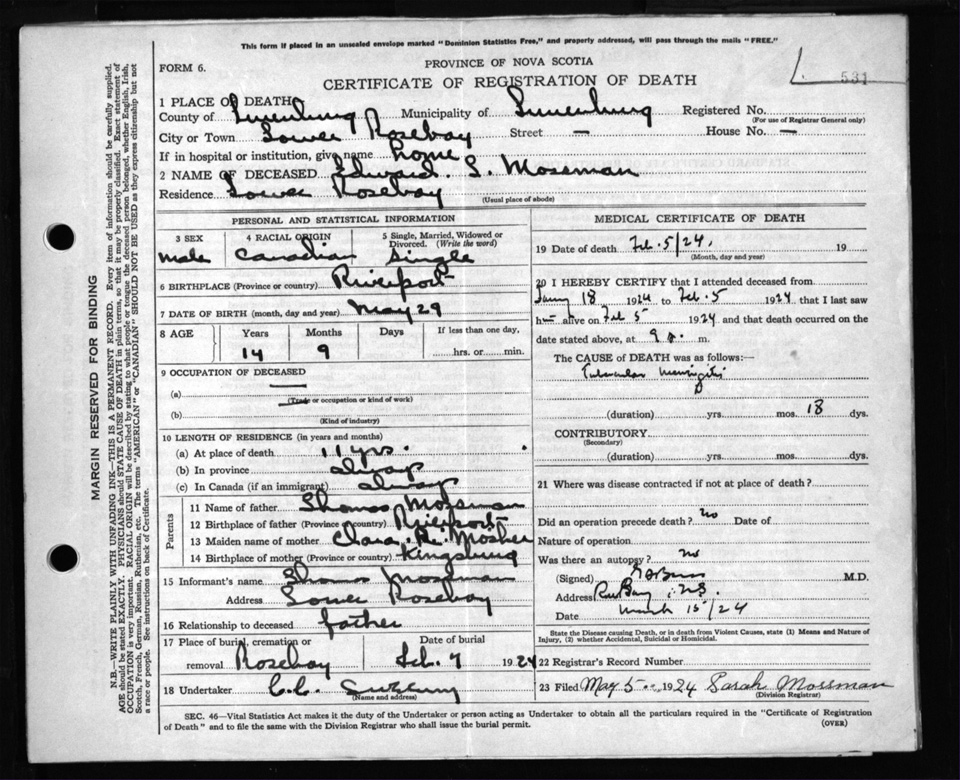 This form if placed in an unsealed envelope marked "Dominion Statistics Free," and properly addressed, will pass through the mails "FREE."
FORM 6.
PROVINCE OF NOVA SCOTIA
CERTIFICATE OF REGISTRATION OF DEATH
L. 531
1 PLACE OF DEATH
County of Lunenburg Municipality of Lunenburg Registered No.
(For use of Registrar General only)
City or Town Lower Rosebay Street — House No. —
If in hospital or institution, give name home
2 NAME OF DECEASED Edward. S. Mossman
Residence Lower Rosebay
(Usual place of abode)
PERSONAL AND STATISTICAL INFORMATION
3 SEX 4 RACIAL ORIGIN 5 Single, Married, Widowed or Divorced. (Write the word)
male Canadian Single
6 BIRTHPLACE (Province or country) Riverport
7 DATE OF BIRTH (month, day and year) May 29
8 AGE Years Months Days If less than one day,
14 9 hrs. or min.
9 OCCUPATION OF DECEASED
(a) —
(Trade or occupation or kind of work)
(b)
(Kind of industry)
10 LENGTH OF RESIDENCE (in years and months)
(a) At place of death 11 yrs.
(b) In province always
(c) In Canada (if an immigrant) always
Parents
11 Name of father Thomas Mossman
12 Birthplace of father (Province or country) Riverport
13 Maiden name of mother Clara. R. Mosher
14 Birthplace of mother (Province or country) Kingsburg
15 Informant's name Thomas Mossman
Address Lower Rosebay
16 Relationship to deceased father
17 Place of burial, cremation or removal Rosebay Date of burial Feb. 7 1924
18 Undertaker C.C.
(Name and address)
MEDICAL CERTIFICATE OF DEATH
19 Date of death Feb. 5/24. 19
(Month, day and year)
20 I HEREBY CERTIFY that I attended deceased from
Jany 18 1924 to Feb. 5 1924 that I last saw
him alive on Feb 5 1924 and that death occurred on the
date stated above, at 9 m.
The CAUSE OF DEATH was as follows:—
Tubercular Meningitis
(duration) yrs. mos. 18 dys.
CONTRIBUTORY
(Secondary)
(duration) yrs. mos. dys.
21 Where was disease contracted if not at place of death?
Did an operation precede death? no Date of
Nature of operation
Was there an autopsy? no
(Signed) M.D.
Address N.S.
Date March 15/24
State the Disease causing Death, or in death from Violent Causes, state (1) Means and Nature of Injury, (2) whether Accidental, Suicidal or Homicidal.
22 Registrar's Record Number
23 Filed May 5 1924 Sarah Mossman
(Division Registrar)
SEC. 46—Vital Statistics Act makes it the duty of the Undertaker or person acting as Undertaker to obtain all the particulars required in the "Certificate of Registration
of Death" and to file the same with the Division Registrar who shall issue the burial permit.
(OVER)
MARGIN RESERVED FOR BINDING
N.B.—WRITE PLAINLY WITH UNFADING INK—THIS IS A PERMANENT RECORD. Every item of information should be carefully supplied.
AGE should be stated EXACTLY. PHYSICIANS should STATE CAUSE OF DEATH in plain terms, so that it may be properly classified. Exact statement of
OCCUPATION is very important. RACIAL ORIGIN will be described by stating to what people or tongue the deceased person belonged, whether English, Irish,
Scotch, French, German, Russian, Ruthenian, etc. The terms "AMERICAN" or "CANADIAN" SHOULD NOT BE USED as they express citizenship but not
a race or people. See instructions on back of Certificate.